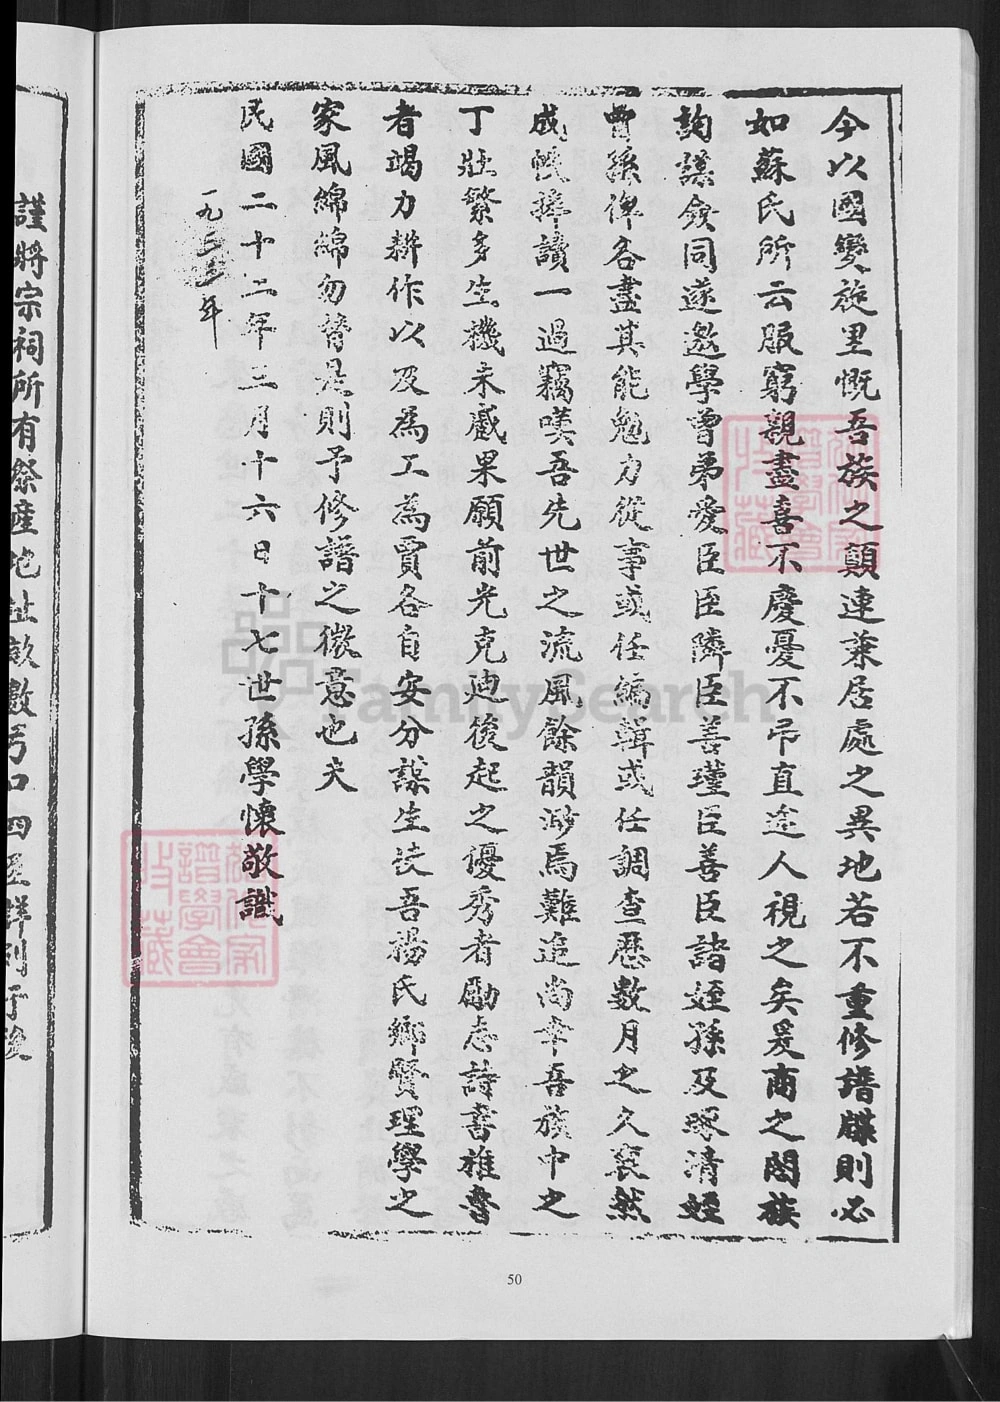 今以國變旋里慨吾族之顛連兼居處之異地若不重修譜牒則必
如蘇氏所云服窮親盡喜不慶憂不弔直途人視之矣爰商之閤族
詢謀僉同遂邀學曾弟愛臣臣隣臣善瑾臣善臣諸姪孫及琢清姪
曾孫俾各盡其能勉力從事或任編輯或任調查歷數月之久裒然
成帙捧讀一過竊嘆吾先世之流風餘韻渺焉難追尚幸吾族中之
丁壯繁多生機未戚果願前光克廸後起之優秀者勵志詩書雅魯
者竭力耕作以及為工為賈各自安分謀生於吾楊氏鄉賢理學之
家風綿綿勿替是則予修譜之微意也夫
民國二十二年三月十六日十七世孫學懷敬識
一九三三年
謹將宗祠所有祭產地址畝數弓口四至詳列于後
收藏
譜學會
FamilySearch
50